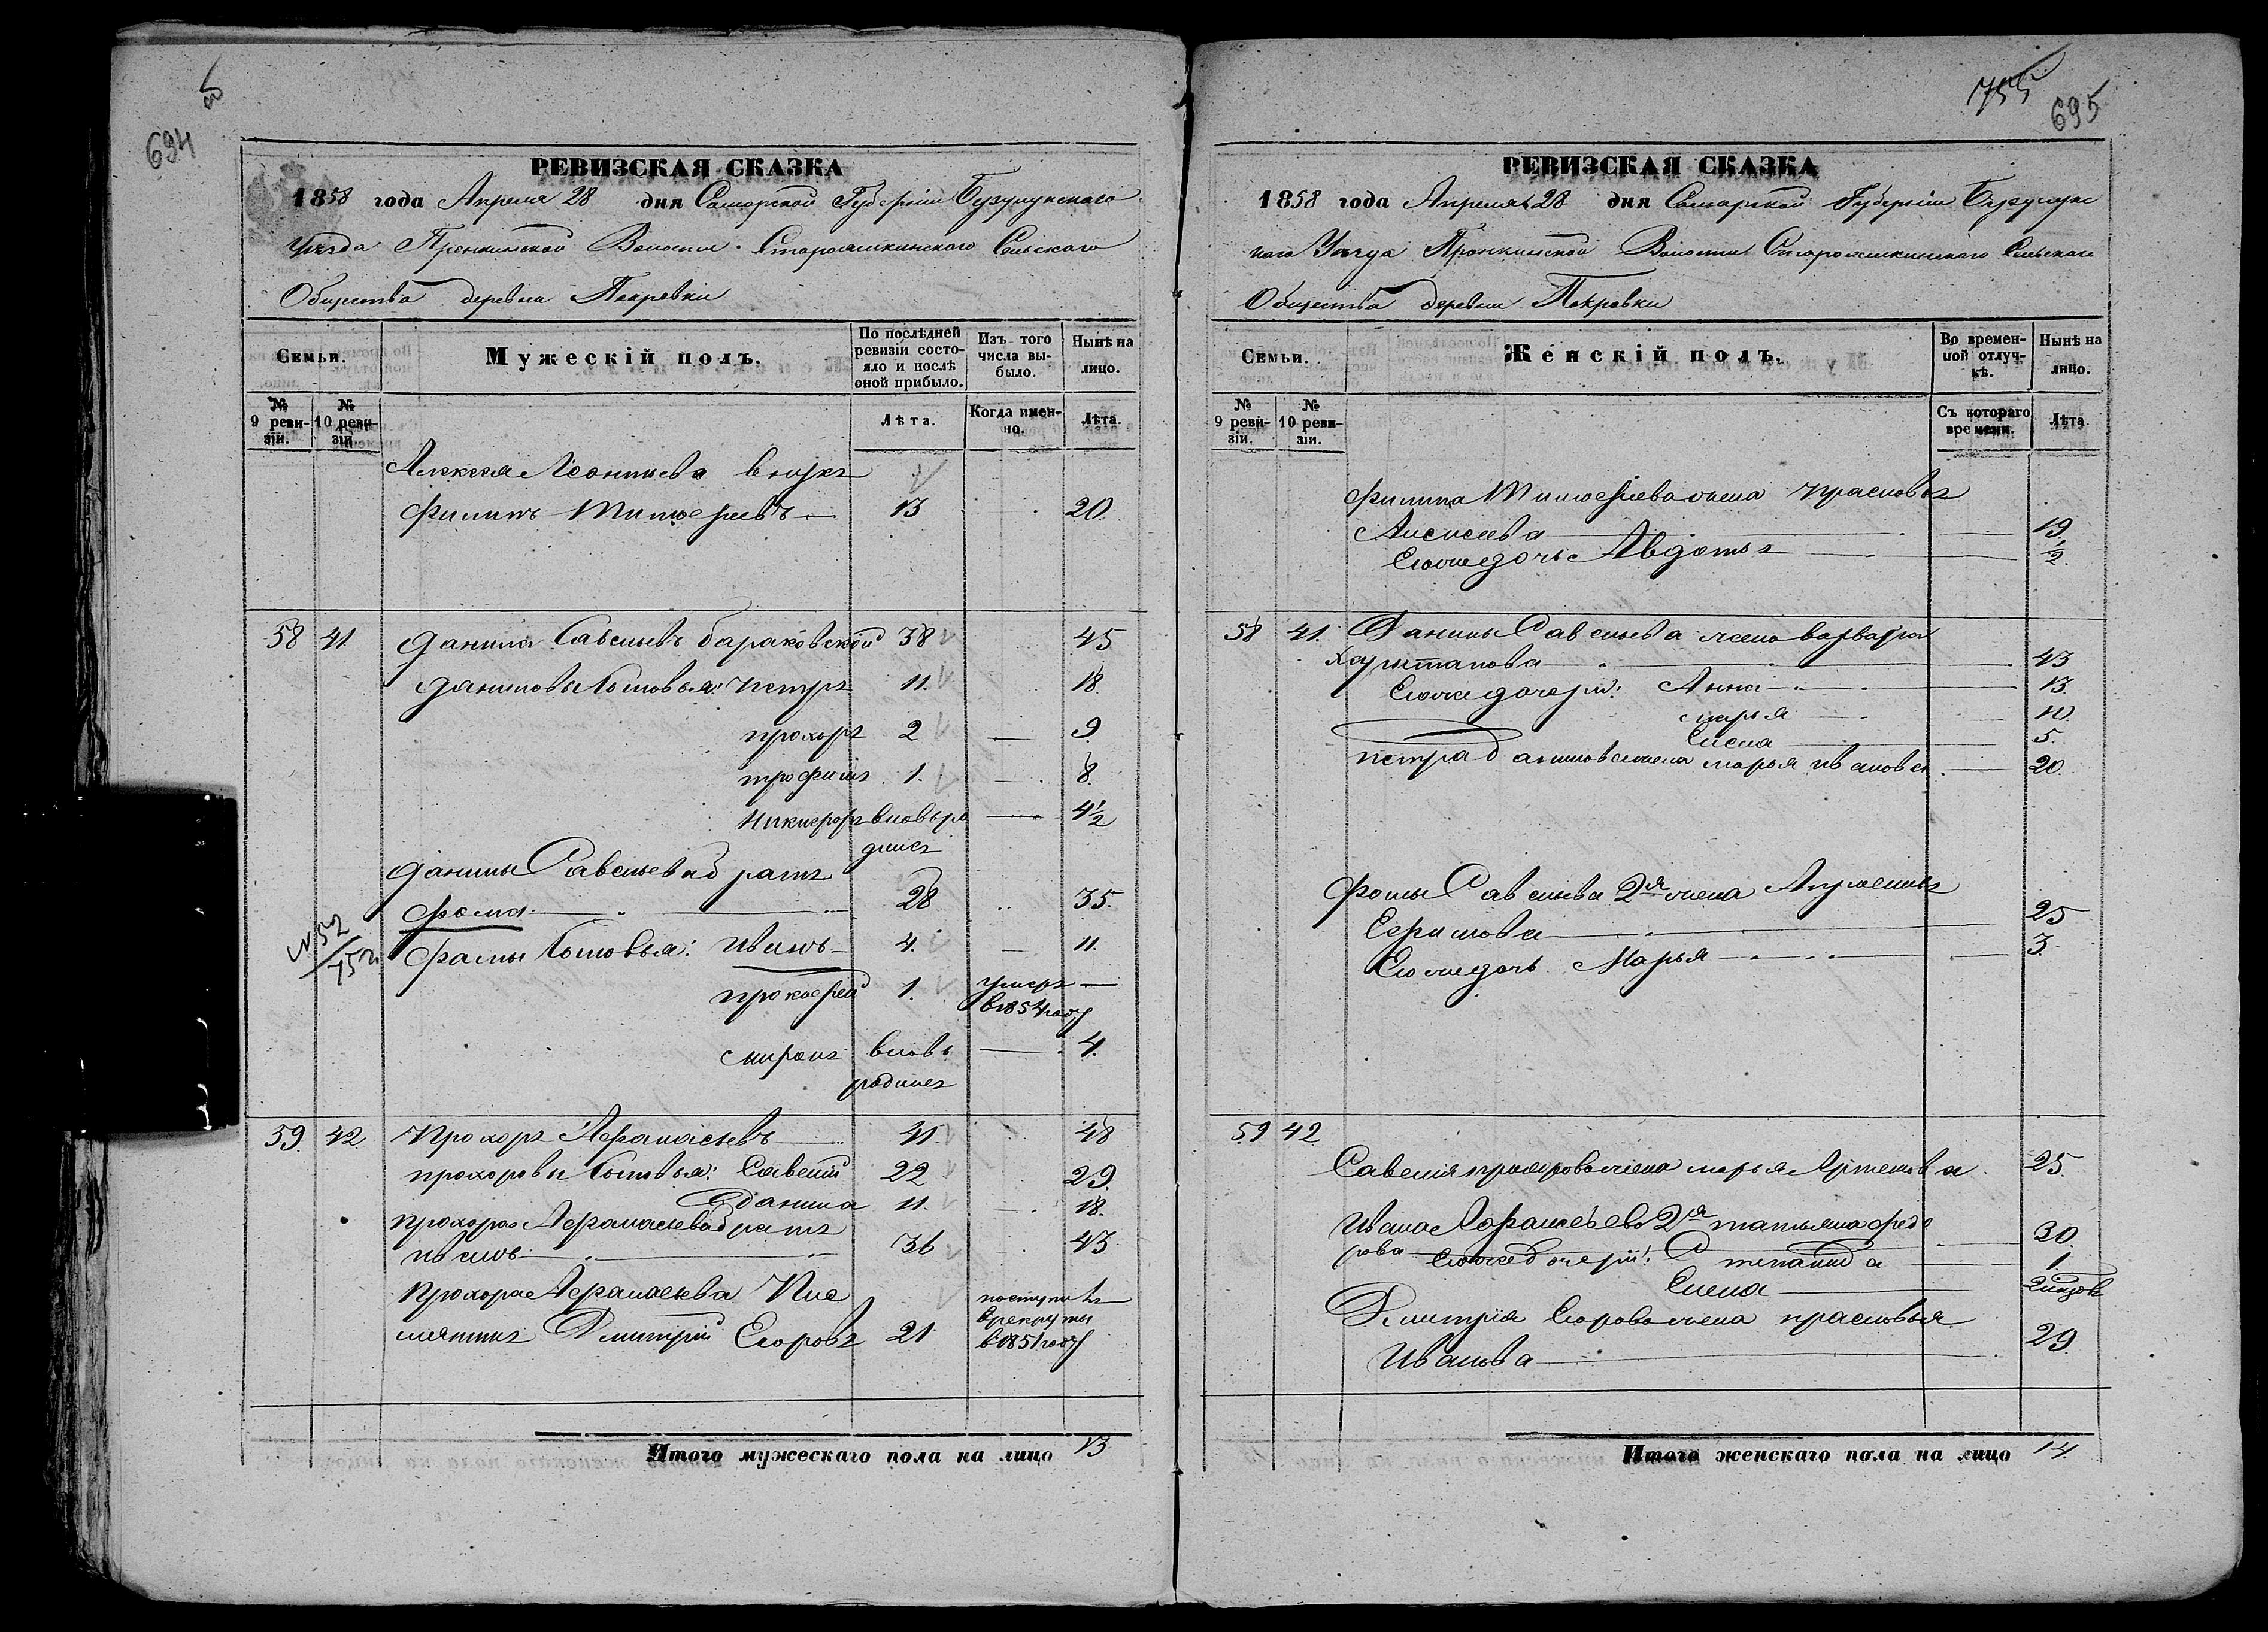 694
РЕВИЗСКАЯ СКАЗКА
1858 года Апреля 28 дня Самарской Губерніи Бузулукскаго
Уѣзда Пронкинской Волости Староашкинскаго Сельскаго
Общества деревни Покровки
Семьи.
Мужескій полъ.
По послѣдней ревизіи состояло и послѣ оной прибыло.
Изъ того числа выбыло.
Нынѣ на лицо.
№ 9 ревизіи.
№ 10 ревизіи.
Лѣта.
Когда именно.
Лѣта.
Алексея Леонтьева внукъ
Филипъ Тимофеевъ 13 20.
58 41. Данила Савельевъ бараковской 38 45
Даниловы сыновья: Петръ 11. 18.
прохоръ 2 9.
трофимъ 1. 8.
Никифоръ вновь ро 4½
дился
Данилы Савельева братъ
Фома 28 35.
№ 52
Фомы сыновья: Иванъ 4. 11.
прокофей 1. умеръ
в 1854 году
миронъ вновь 4.
родился
59. 42. Прохоръ Афанасьевъ 41 48
прохоровы сыновья: Савелій 22 29.
Данила 11. 18.
прохора Афанасьева братъ
иванъ 36 43
Прохора Афанасьева Пле
поступилъ
мянникъ Дмитрій Егоровъ 21
в рекруты
в 1851 году
Итого мужескаго пола на лицо 13
755
695
РЕВИЗСКАЯ СКАЗКА
1858 года Апреля 28 дня Самарской Губерніи Бузулукс
каго Уѣзда Пронкинской Волости Староашкинскаго Сельскаго
Общества деревни Покровки
Семьи.
Женскій полъ.
Во временной отлучкѣ.
Нынѣ на лицо.
№ 9 ревизіи.
№ 10 ревизіи.
Съ котораго времени.
Лѣта.
Филипа Тимофеева жена прасковья
Алексеева 19.
Еиоже дочь Авдотья ½
58 41. Данилы Савельева жена варвара
Хаританова 43
Еиоже дочери: Анна 13.
марья 10.
Елена 5.
петра данилова жена марья иванова 20.
Фомы Савельева 2я жена
Ефимова 25
Еиоже дочь Марья 3.
59 42.
Савелия прохорова жена марья Артемова 25.
Ивана Афанасьева 2я татьяна федо
рова 30.
Еиоже дочери: Степанида 1
Елена
Дмитрія Егорова жена прасковья
Иванова 29.
Итого женскаго пола на лицо 14.